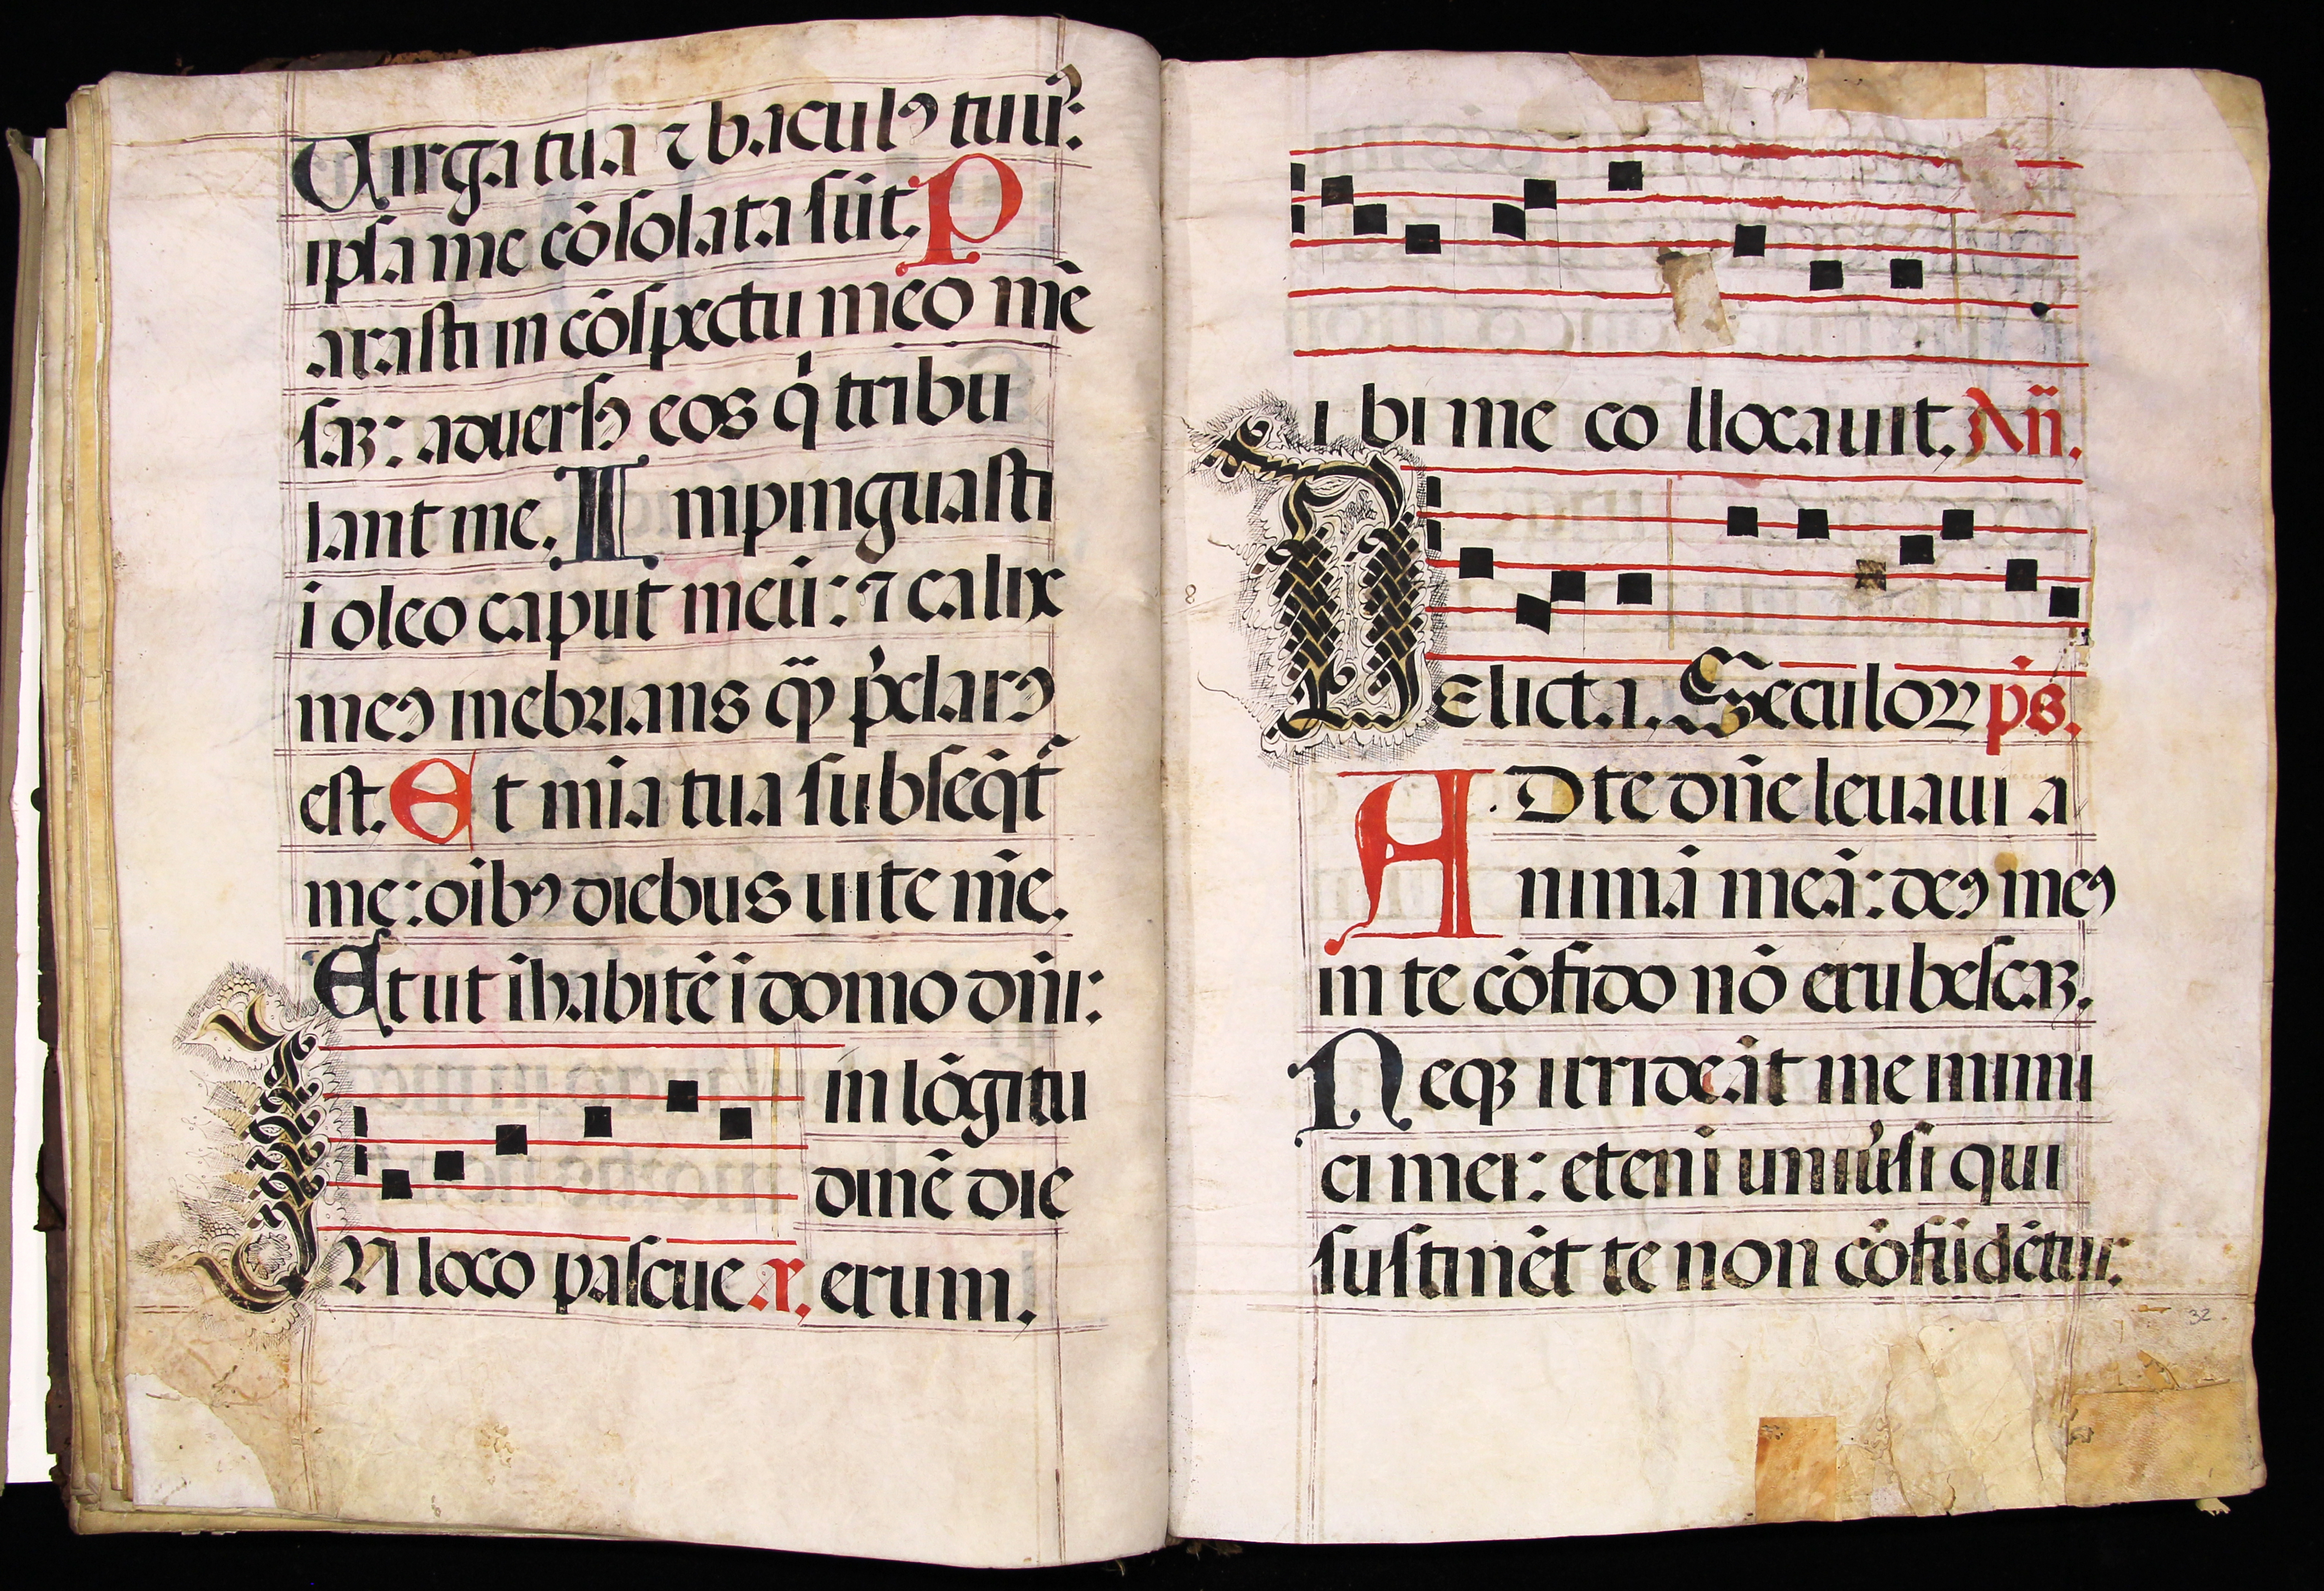 Uirga tua ⁊ baculꝰ tuus:
ipsa me cōsolata sūt. P
arasti in cōspectu meo mē
saʒ: aduersꝰ eos q̇ tribu
lant me. I mpinguasti
i oleo caput meū: ⁊ calix
meꝰ inebrians q̄ p̄clarꝰ
est. E t mīa tua subseq̄t᷑
me: oībꝰ diebus uite mēe.
Et ut īhabitē ī domo dn̄i:
in lōgitu
dinē die
IN loco pascue r. erum.
ibi me collocauit. Añ.
Delicta. Seculoꝝ p̄s.
AD te dn̄e leuaui a
nimā meā: deꝰ meꝰ
in te cōfido nō erubescaʒ.
Neqʒ irrideāt me inimi
ci mei: etenī uniu̇si qui
sustinēt te non cōfūdētur.
32.